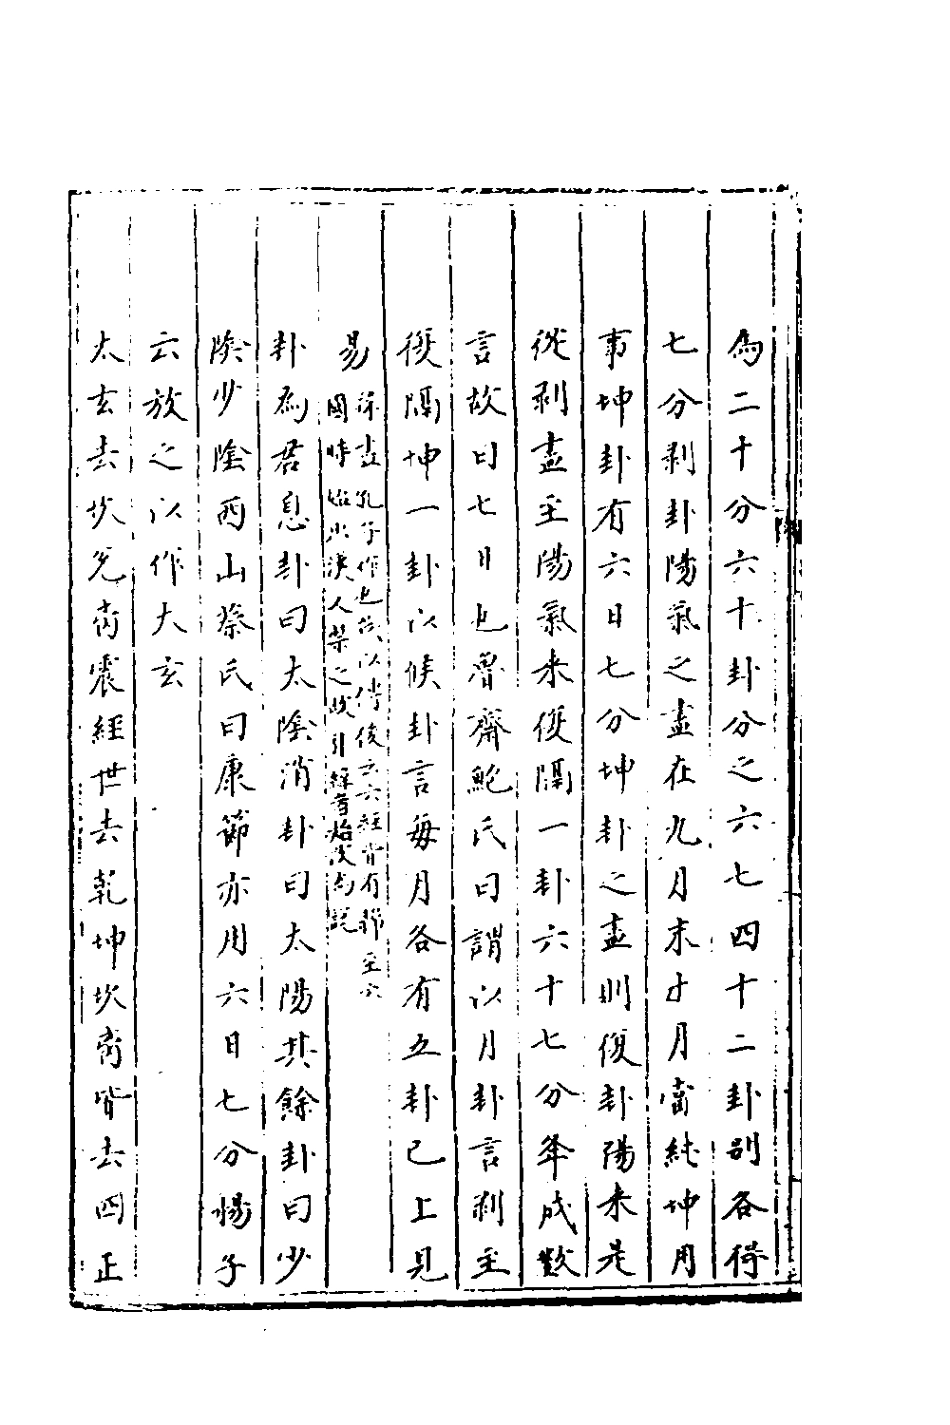 為二十分六十卦分之六七四十二卦別各得
七分剥卦陽氣之盡在九月末十月當純坤用
事坤卦有六日七分坤卦之盡則復卦陽来是
從剥盡至陽氣来復隔一卦六十七分举成數
言故曰七日也魯齋鮑氏曰謂以月卦言剥至
復隔坤一卦以候卦言每月各有五卦已上見
易
緯書孔子作也故以傳後云六經皆有緯至六
國時始興漢人禁之故引緯書始改為說
卦為君息卦曰太陰消卦曰太陽其餘卦曰少
陰少陰西山蔡氏曰康節亦用六日七分楊子
云放之以作大玄
太玄去坎兌离震經世去乾坤坎离皆去四正